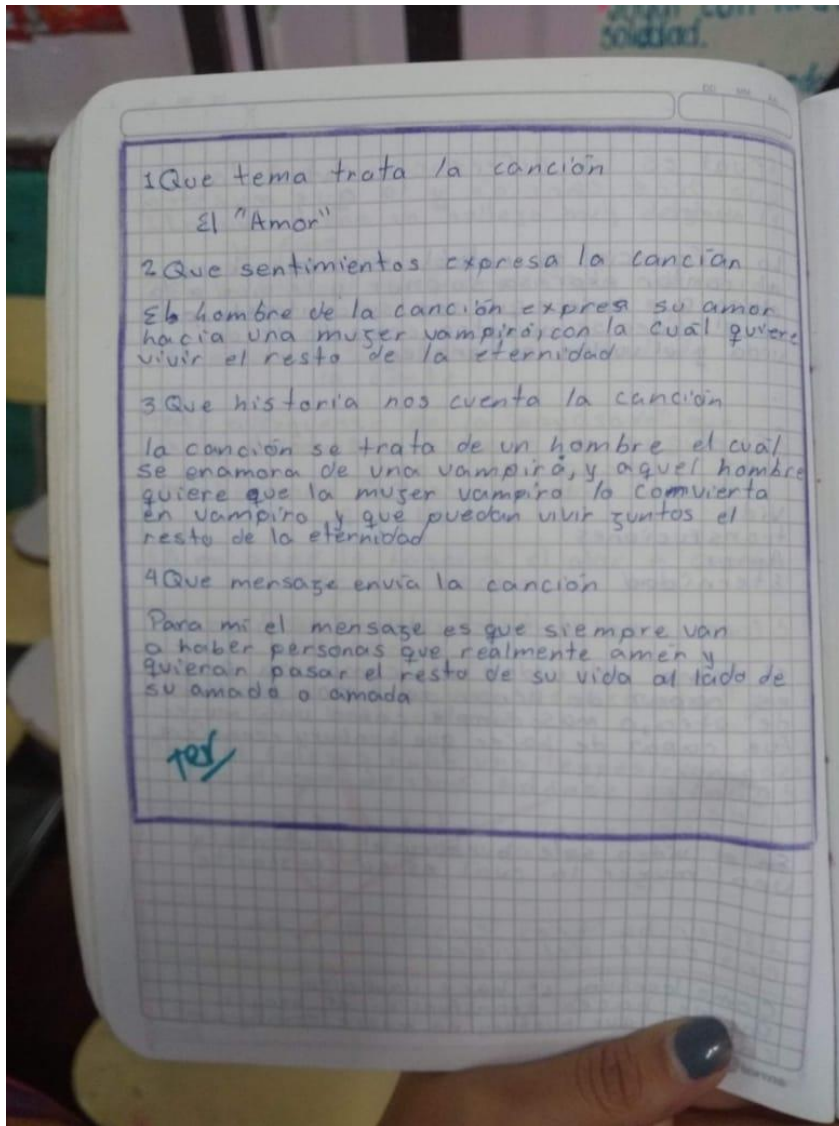 soledad.
1 Que tema trata la canción
El "Amor"
2 Que sentimientos expresa la canción
El hombre de la canción expresa su amor
hacia una muger vampira, con la cuál quiere
vivir el resto de la eternidad
3 Que historia nos cuenta la canción
la canción se trata de un hombre el cuál
se enamora de una vampira, y aquel hombre
quiere que la muger vampira lo comvierta
en vampiro y que puedan vivir guntos el
resto de la eternidad
4 Que mensage envía la canción
Para mi el mensage es que siempre van
a haber personas que realmente amen y
quieran pasar el resto de su vida al lado de
su amado o amada
ter